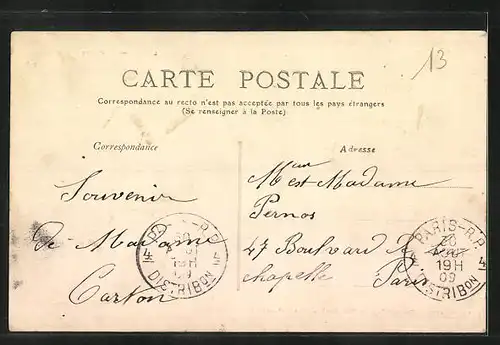 13
CARTE POSTALE
Correspondance au recto n'est pas acceptée par tous les pays étrangers
(Se renseigner à la Poste)
Correspondance
Adresse
Souvenir
de Madame
Carton
Mme et Madame
Pernos
47 Boulvard
chapelle
Paris
PARIS-R.P.
20
AOUT
19H
09
DISTRIBON
4E
R.P.
19H
09
DISTRIBON
4E